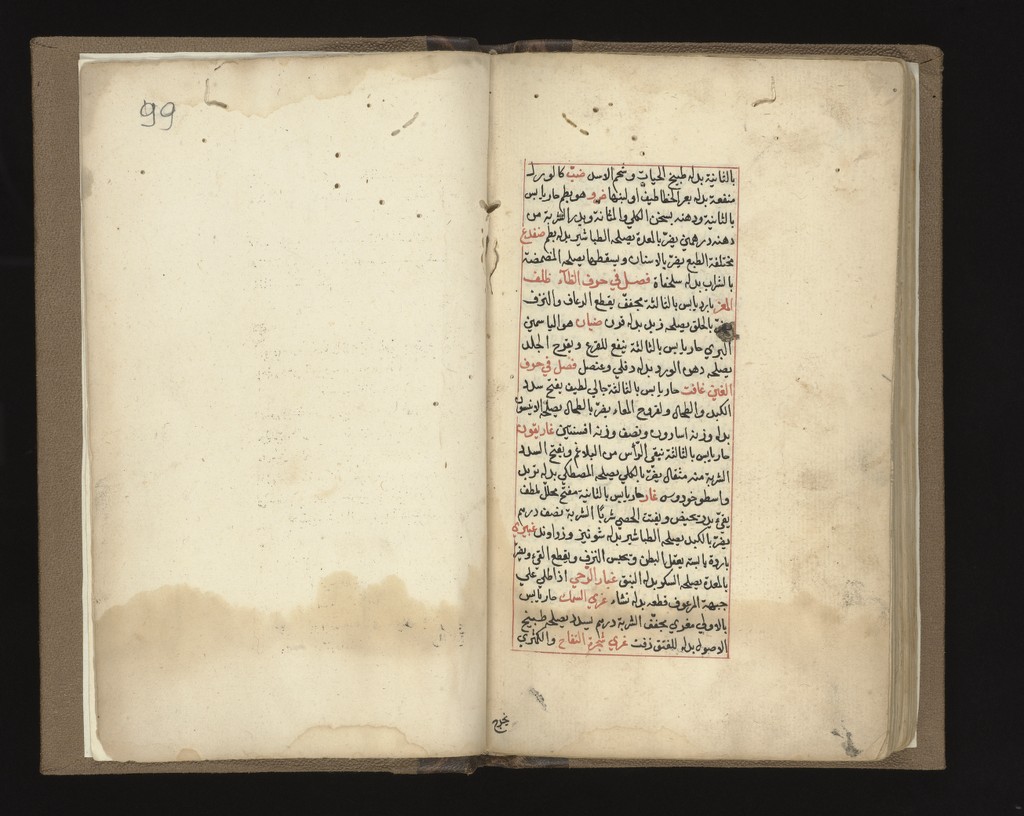 99
بالثانية بدله طبيخ الحيات وشحم الاسد ضب كالورل
منفعة بدله بعر الخطاطيف او لبنها ضرو هو بطم حار يابس
بالثانية ودهنه يسخن الكلي والمثانة ويدر الشربة من
دهنه درهمين يضر بالمعدة يصلحه الطباشير بدله بطم ضفدع
مختلفة الطبع يضر بالاسنان ويسقطها يصلحه المضمضة
بالشراب بدله سلحفاة فصل في حرف الظاء ظلف
المعز بارد يابس بالثالثة مجفف يقطع الرعاف والنزف
يضر بالحلق يصلحه زبد بدله قرن ضيان هو الياسمين
البري حار يابس بالثالثة ينفع للقرع ويقرح الجلد
يصلحه دهن الورد بدله دفلي وعنصل فصل في حرف
الغين غافت حار يابس بالثالثة جالي لطيف يفتح سدد
الكبد والطحال ولقروح المعاء يضر بالطحال يصلحه الانيسون
بدله وزنه اسارون ونصف وزنه افسنتين غاريقون
حار يابس بالثالثة ينقي الرأس من البلاغم ويفتح السدد
الشربة منه مثقال يضر بالكلي يصلحه المصطكي بدله تربد
واسطوخودوس غار حار يابس بالثانية مفتح محلل ملطف
يقيء يدر بحيض ويفتت الحصي شربا الشربة نصف درهم
يضر بالكبد يصلحه الطباشير بدله شونيز وزراوند غبيري
باردة يابسة يعقل البطن ويحبس النزف ويقطع القيء ويضر
بالمعدة يصلحه السكر بدله النبق غبار الرحي اذا طلي علي
جبهة المرعوف قطعه بدله نشاء غري السمك حار يابس
بالاولي مغري مجفف الشربة درهم يسدد يصلحه طبيخ
الاصول بدله للفتق زفت غري شجرة التفاح والكمثري